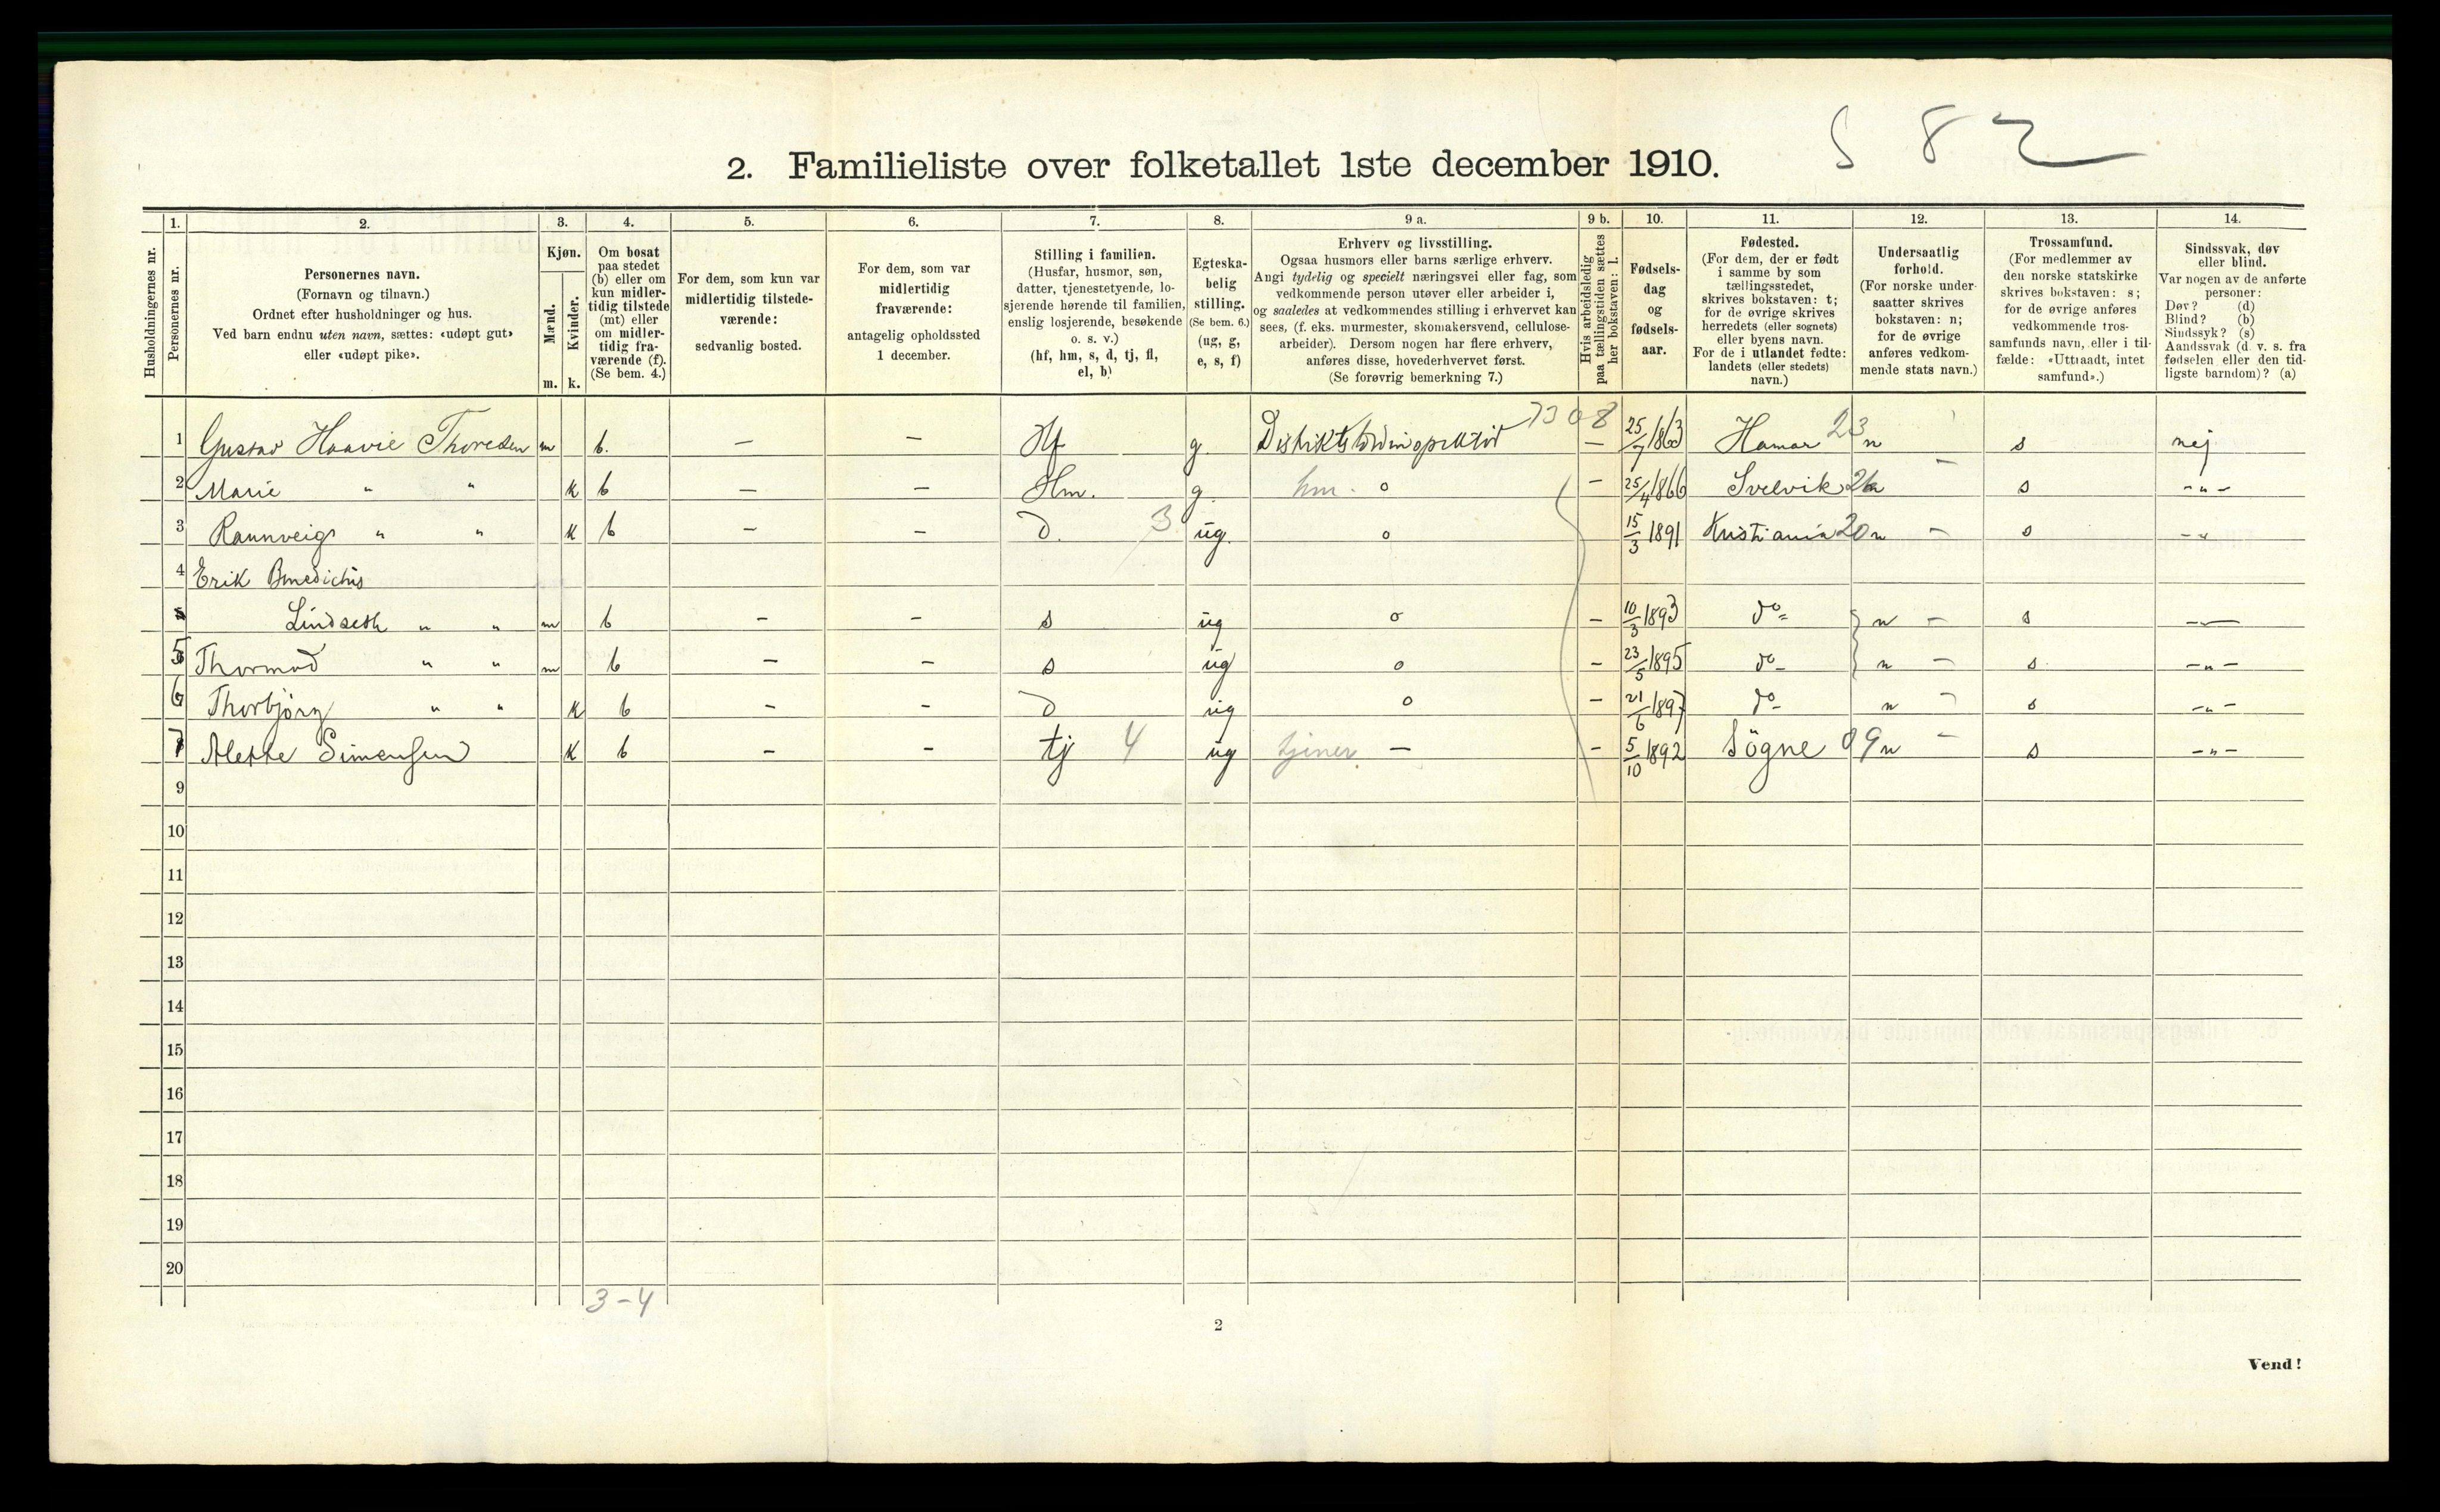 S 82
2. Familieliste over folketallet 1ste december 1910.
1. 2. 3. 4. 5. 6. 7. 8. 9 a. 9 b. 10. 11. 12. 13. 14.
Husholdningernes nr.
Personernes nr.
Personernes navn.
(Fornavn og tilnavn.)
Ordnet efter husholdninger og hus.
Ved barn endnu uten navn, sættes: «udøpt gut»
eller «udøpt pike».
Kjøn.
Mænd.
Kvinder.
m. k.
Om bosat
paa stedet
(b) eller om
kun midler-
tidig tilstede
(mt) eller
om midler-
tidig fra-
værende (f).
(Se bem. 4.)
For dem, som kun var
midlertidig tilstede-
værende:
sedvanlig bosted.
For dem, som var
midlertidig
fraværende:
antagelig opholdssted
1 december.
Stilling i familien.
(Husfar, husmor, søn,
datter, tjenestetyende, lo-
sjerende hørende til familien,
enslig losjerende, besøkende
o. s. v.)
(hf, hm, s, d, tj, fl,
el, b)
Egteska-
belig
stilling.
(Se bem. 6.)
(ug, g,
e, s, f)
Erhverv og livsstilling.
Ogsaa husmors eller barns særlige erhverv.
Angi tydelig og specielt næringsvei eller fag, som
vedkommende person utøver eller arbeider i,
og saaledes at vedkommendes stilling i erhvervet kan
sees, (f. eks. murmester, skomakersvend, cellulose-
arbeider). Dersom nogen har flere erhverv,
anføres disse, hovederhvervet først.
(Se forøvrig bemerkning 7.)
Hvis arbeidsledig
paa tællingstiden sættes
her bokstaven: l.
Fødsels-
dag
og
fødsels-
aar.
Fødested.
(For dem, der er født
i samme by som
tællingsstedet,
skrives bokstaven: t;
for de øvrige skrives
herredets (eller sognets)
eller byens navn.
For de i utlandet fødte:
landets (eller stedets)
navn.)
Undersaatlig
forhold.
(For norske under-
saatter skrives
bokstaven: n;
for de øvrige
anføres vedkom-
mende stats navn.)
Trossamfund.
(For medlemmer av
den norske statskirke
skrives bokstaven: s;
for de øvrige anføres
vedkommende tros-
samfunds navn, eller i til-
fælde: «Uttraadt, intet
samfund».)
Sindssvak, døv
eller blind.
Var nogen av de anførte
personer:
Døv? (d)
Blind? (b)
Sindssyk? (s)
Aandssvak (d. v. s. fra
fødselen eller den tid-
ligste barndom)? (a)
1 Gustav Haavie Thoresen m b. — — Hf g. 7308 — 25/7 1863 Hamar 23 n s nej
2 Marie " " k b — — Hm. g. hm. o — 25/4 1866 Svelvik n s -"-
3 Rannveig " " k b — — D. 3 ug. o 15/3 1891 Kristiania 20 n — s -"-
4 Erik Benedictus
Lindseth " " m b — — s ug o — 10/3 1893 do n — s —
5 Thormod " " m b — — s ug o — 23/5 1895 do n — s -"-
6 Thorbjörg " " k b — — D ug o — 21/6 1897 do n — s -"-
7 Alette Simensen k b — — tj 4 ug tjener — — 5/10 1892 Sögne 09 n — s -"-
9
10
11
12
13
14
15
16
17
18
19
20
3-4
2
Vend!